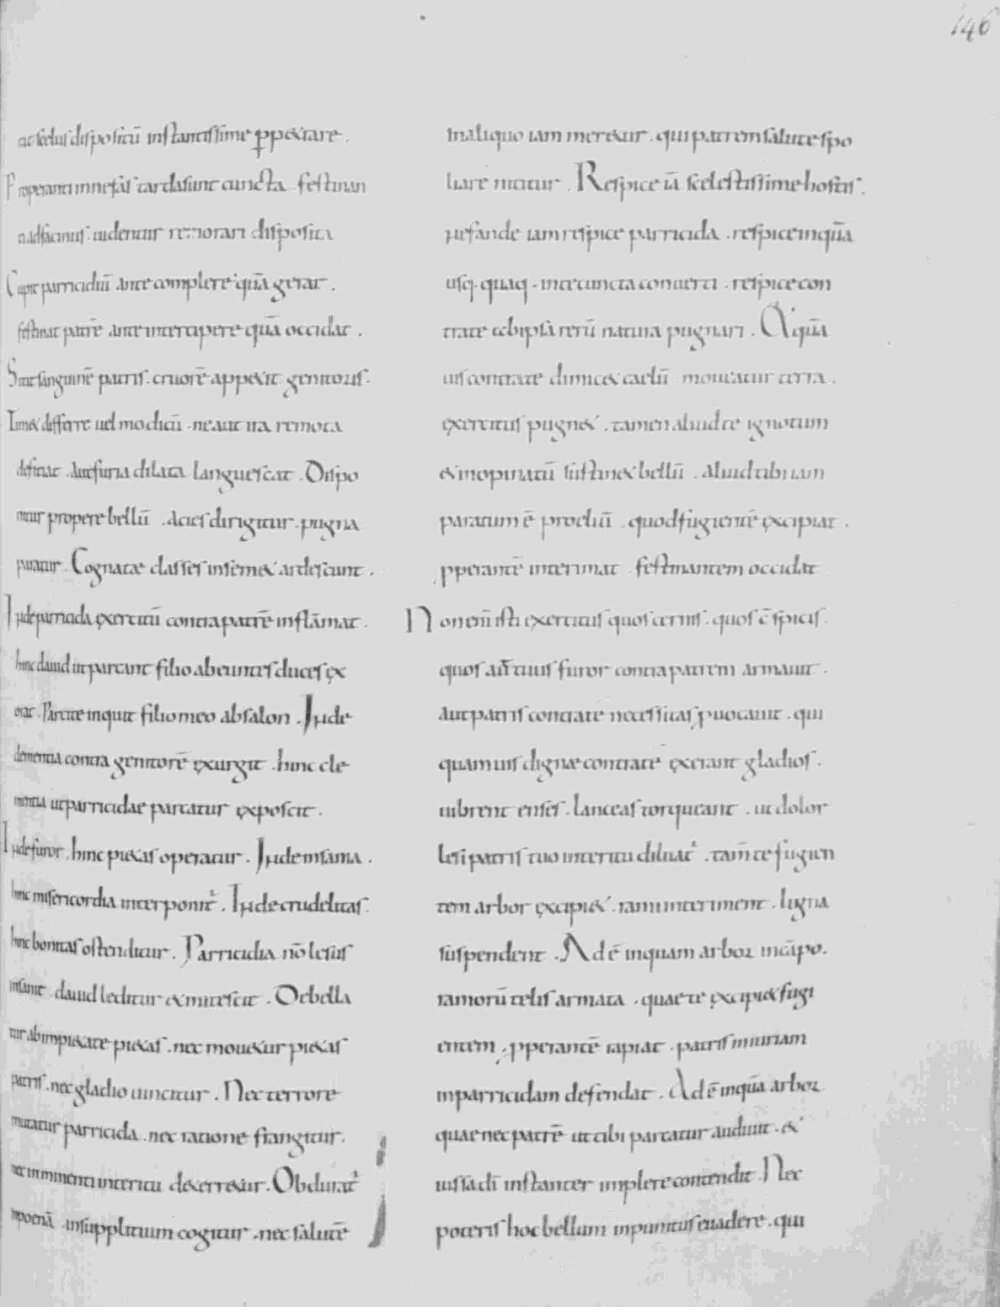 146
scelus dispositū instantissime ꝑpetrare.
Properanti in nefas tarda sunt cuncta. festinan
ad facinus. uidentur remorari disposita
Cupit parricidiū ante complere quā gerat.
festinat patrē ante intercipere quā occidat.
Sitit sanguinē patris. cruorē appetit genitoris.
Timet differre uel modicū. ne aut ira remota
desinat. Aut furia dilata languescat. Dispo
nitur propere bellū. Acies dirigitur. pugna
paratur. Cognatae classes in semet ardescunt.
Inde parricida exercitū contra patrē inflāmat.
hinc dauid ut parcant filio abeuntes duces ex
orat. Parcite inquit filio meo absalon. Inde
dementia contra genitorē exurgit. hinc cle
mentia ut parricidae parcatur exposcit.
Inde furor. hinc pietas operatur. Inde insania.
hinc misericordia interponit². Inde crudelitas.
hinc bonitas ostenditur. Parricidia nō lesus
insanit. dauid leditur et mitescit. Debella
tur ab impietate pietas. nec mouetur pietas
patris. nec gladio uincitur. Nec terrore
mutatur parricida. nec ratione frangitur.
nec imminenti interitu deterretur. Obdurat²
in poenā. in supplicium cogitur. nec salutē
in aliquo iam meretur. qui patrem salute spo
liare nititur. Respice iā scelestissime hostis.
nefande iam respice parricida. respice inquā
usq. quaq. in te cuncta conuerti. respice con
tra te et ipsā rerū natura pugnari. A quā
uis contra te dimicet caelū moueatur terra.
exercitus pugnet. tamen aliud te ignotum
et inopinatū sustinet bellū. aliud tibi iam
paratum ē proeliū. quod fugientē excipiat.
ꝓperantē interimat festinantem occidat
Non enī isti exercitus quos cernis. quos cōspicis.
quos aut tuus furor contra patrem armauit.
Aut patris contra te necessitas ꝓuocauit. qui
quamuis digne contra te exerant gladios.
uibrent enses. lanceas torqueant. ut dolor
lesi patris tuo interitu diluat². tam̄ te fugien
tem arbor excipiet. rami interiment. ligna
suspendent. Adē inquam arbor in cāpo.
ramorū telis armata. quae te excipiet fugi
entem. ꝓperantē rapiat. patris iniuriam
in parricidam defendat. Adē inquā arbor
quae nec patrē ut tibi parcatur audiuit. et
iussa dī instanter implere contendit. Nec
poteris hoc bellum inpunitus euadere. qui